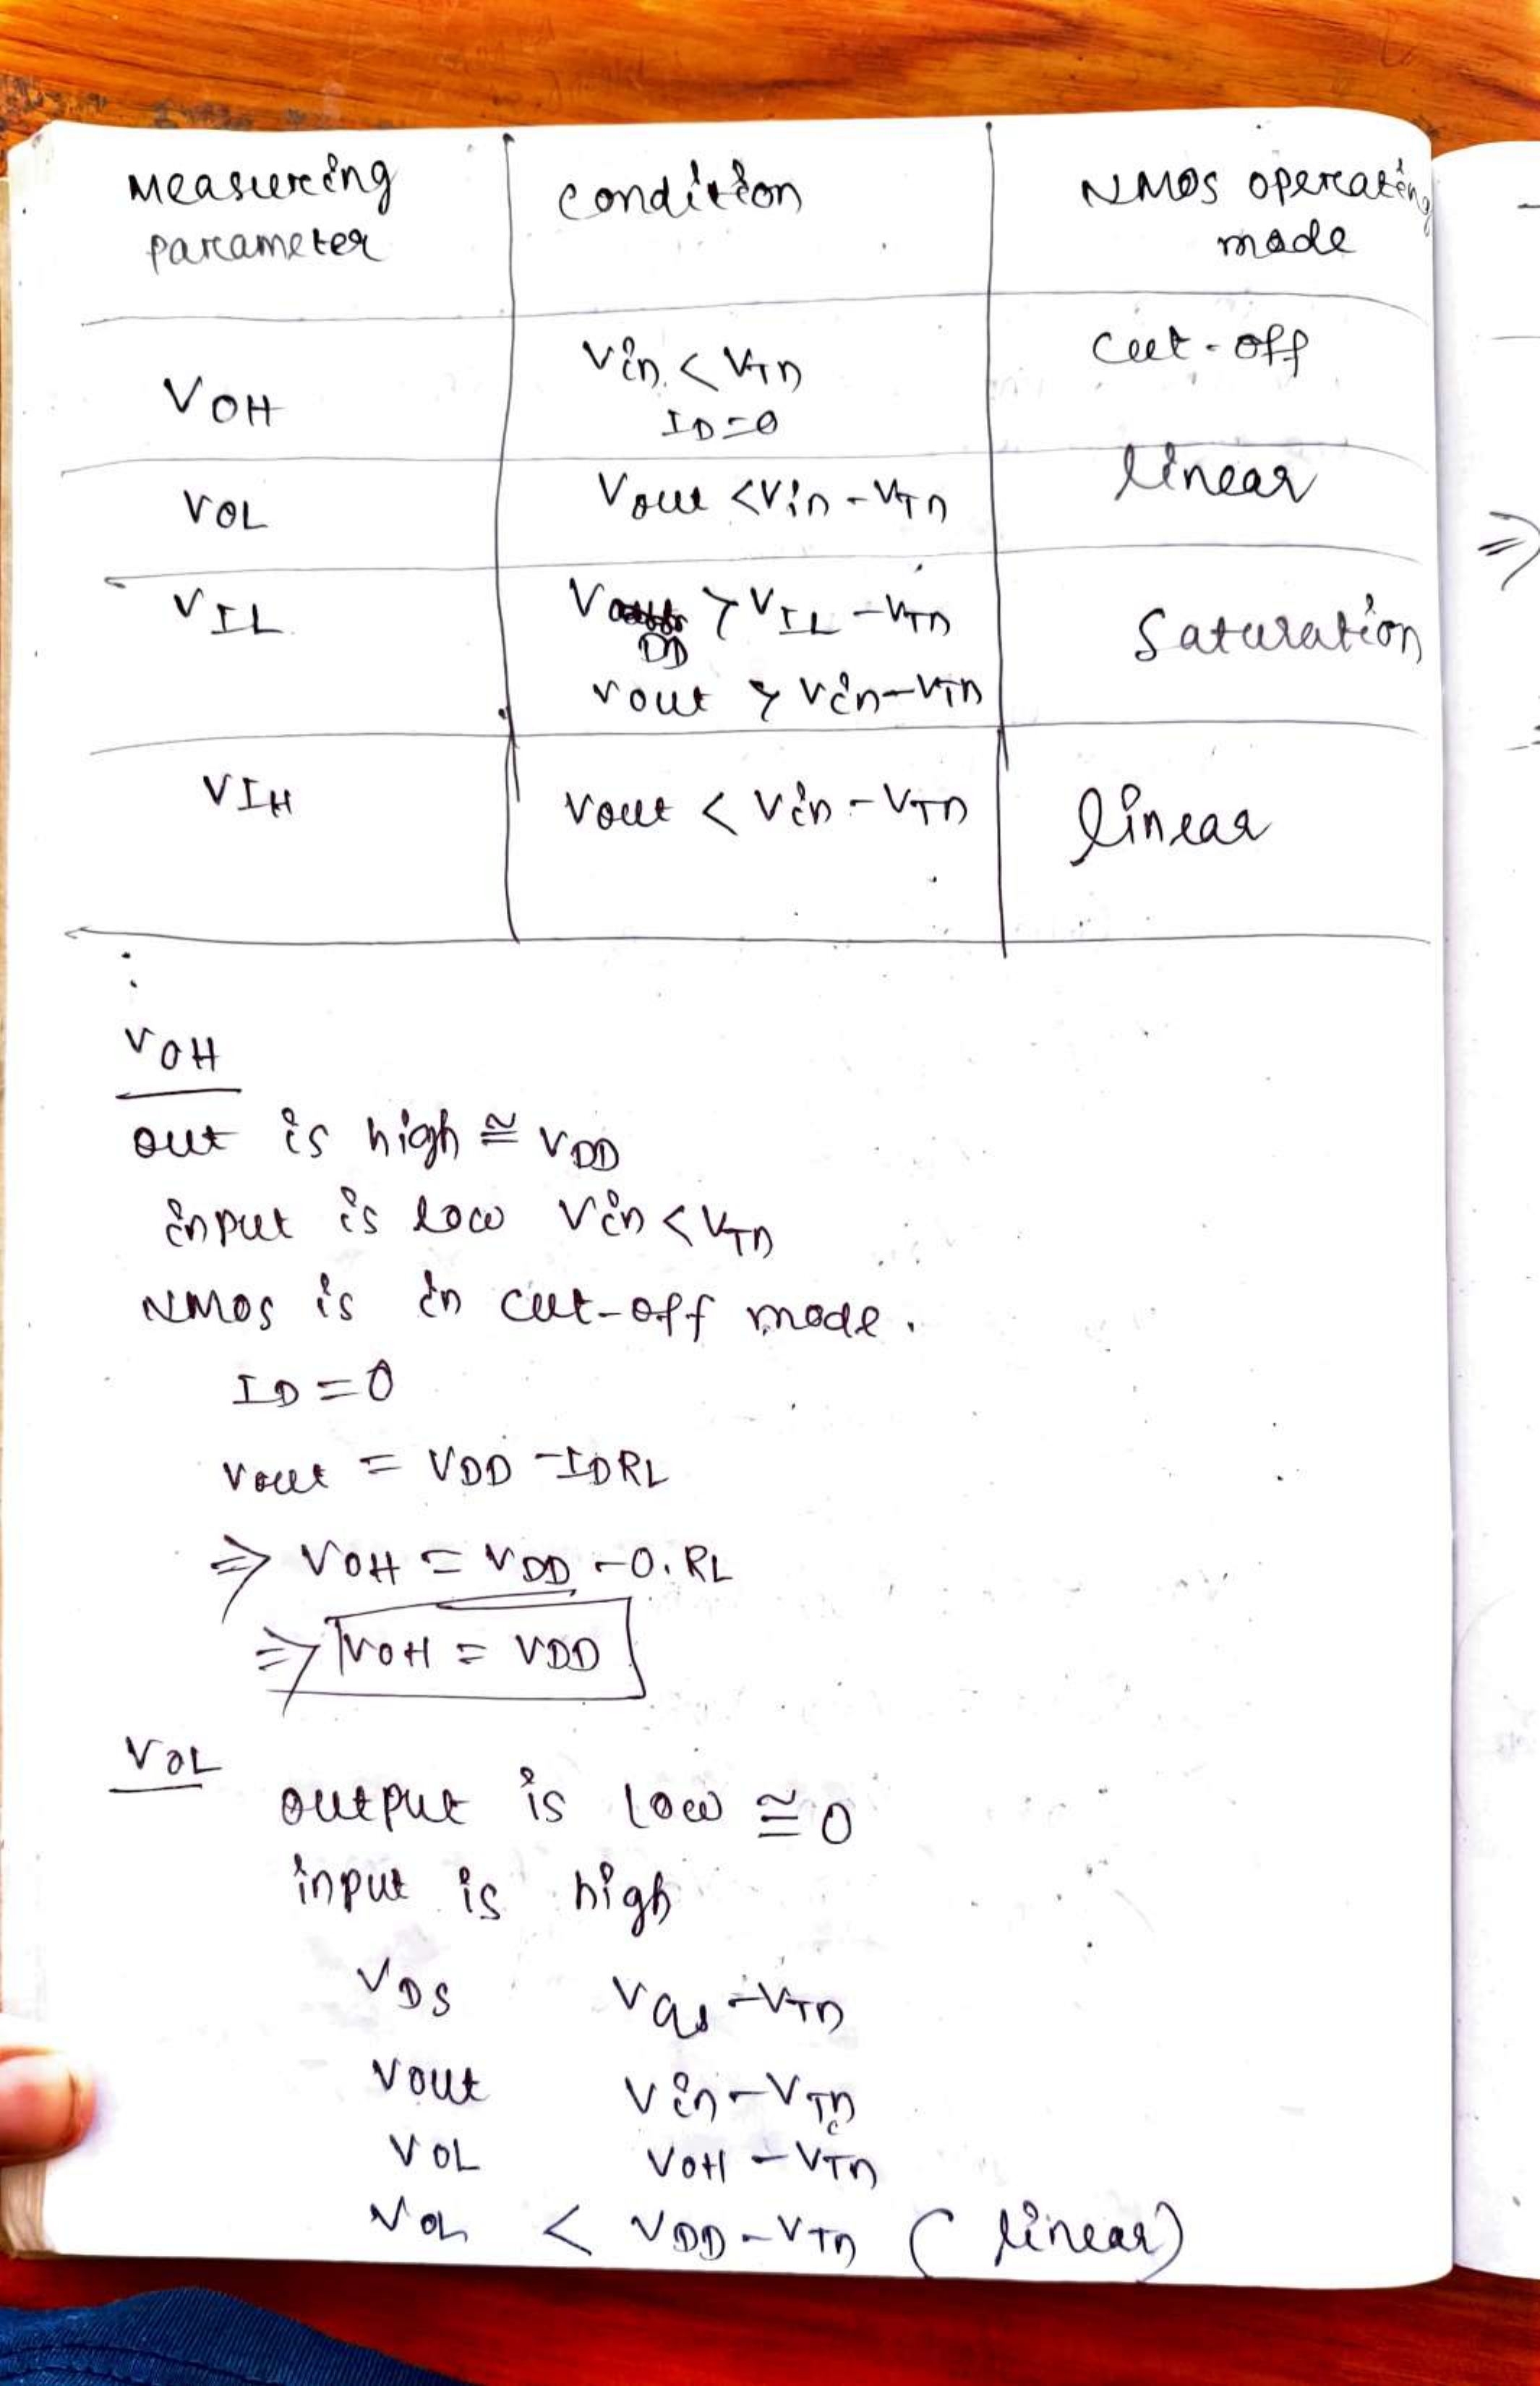 Measuring parameter | condition | NMOS operating mode
VOH | Vin < VTn
ID=0 | cut-off
VOL | Vout < Vin - VTn | linear
VIL | VDD > VIL - VTn
Vout > Vin - VTn | Saturation
VIH | Vout < Vin - VTn | linear
VOH
out is high ≅ VDD
input is low Vin < VTn
NMOS is in cut-off mode.
ID = 0
Vout = VDD - IDRL
⇒ VOH = VDD - 0.RL
⇒ VOH = VDD
VOL
output is low ≅ 0
input is high
VDS VGS - VTn
Vout Vin - VTn
VOL VOH - VTn
VOL < VDD - VTn (linear)
⇒